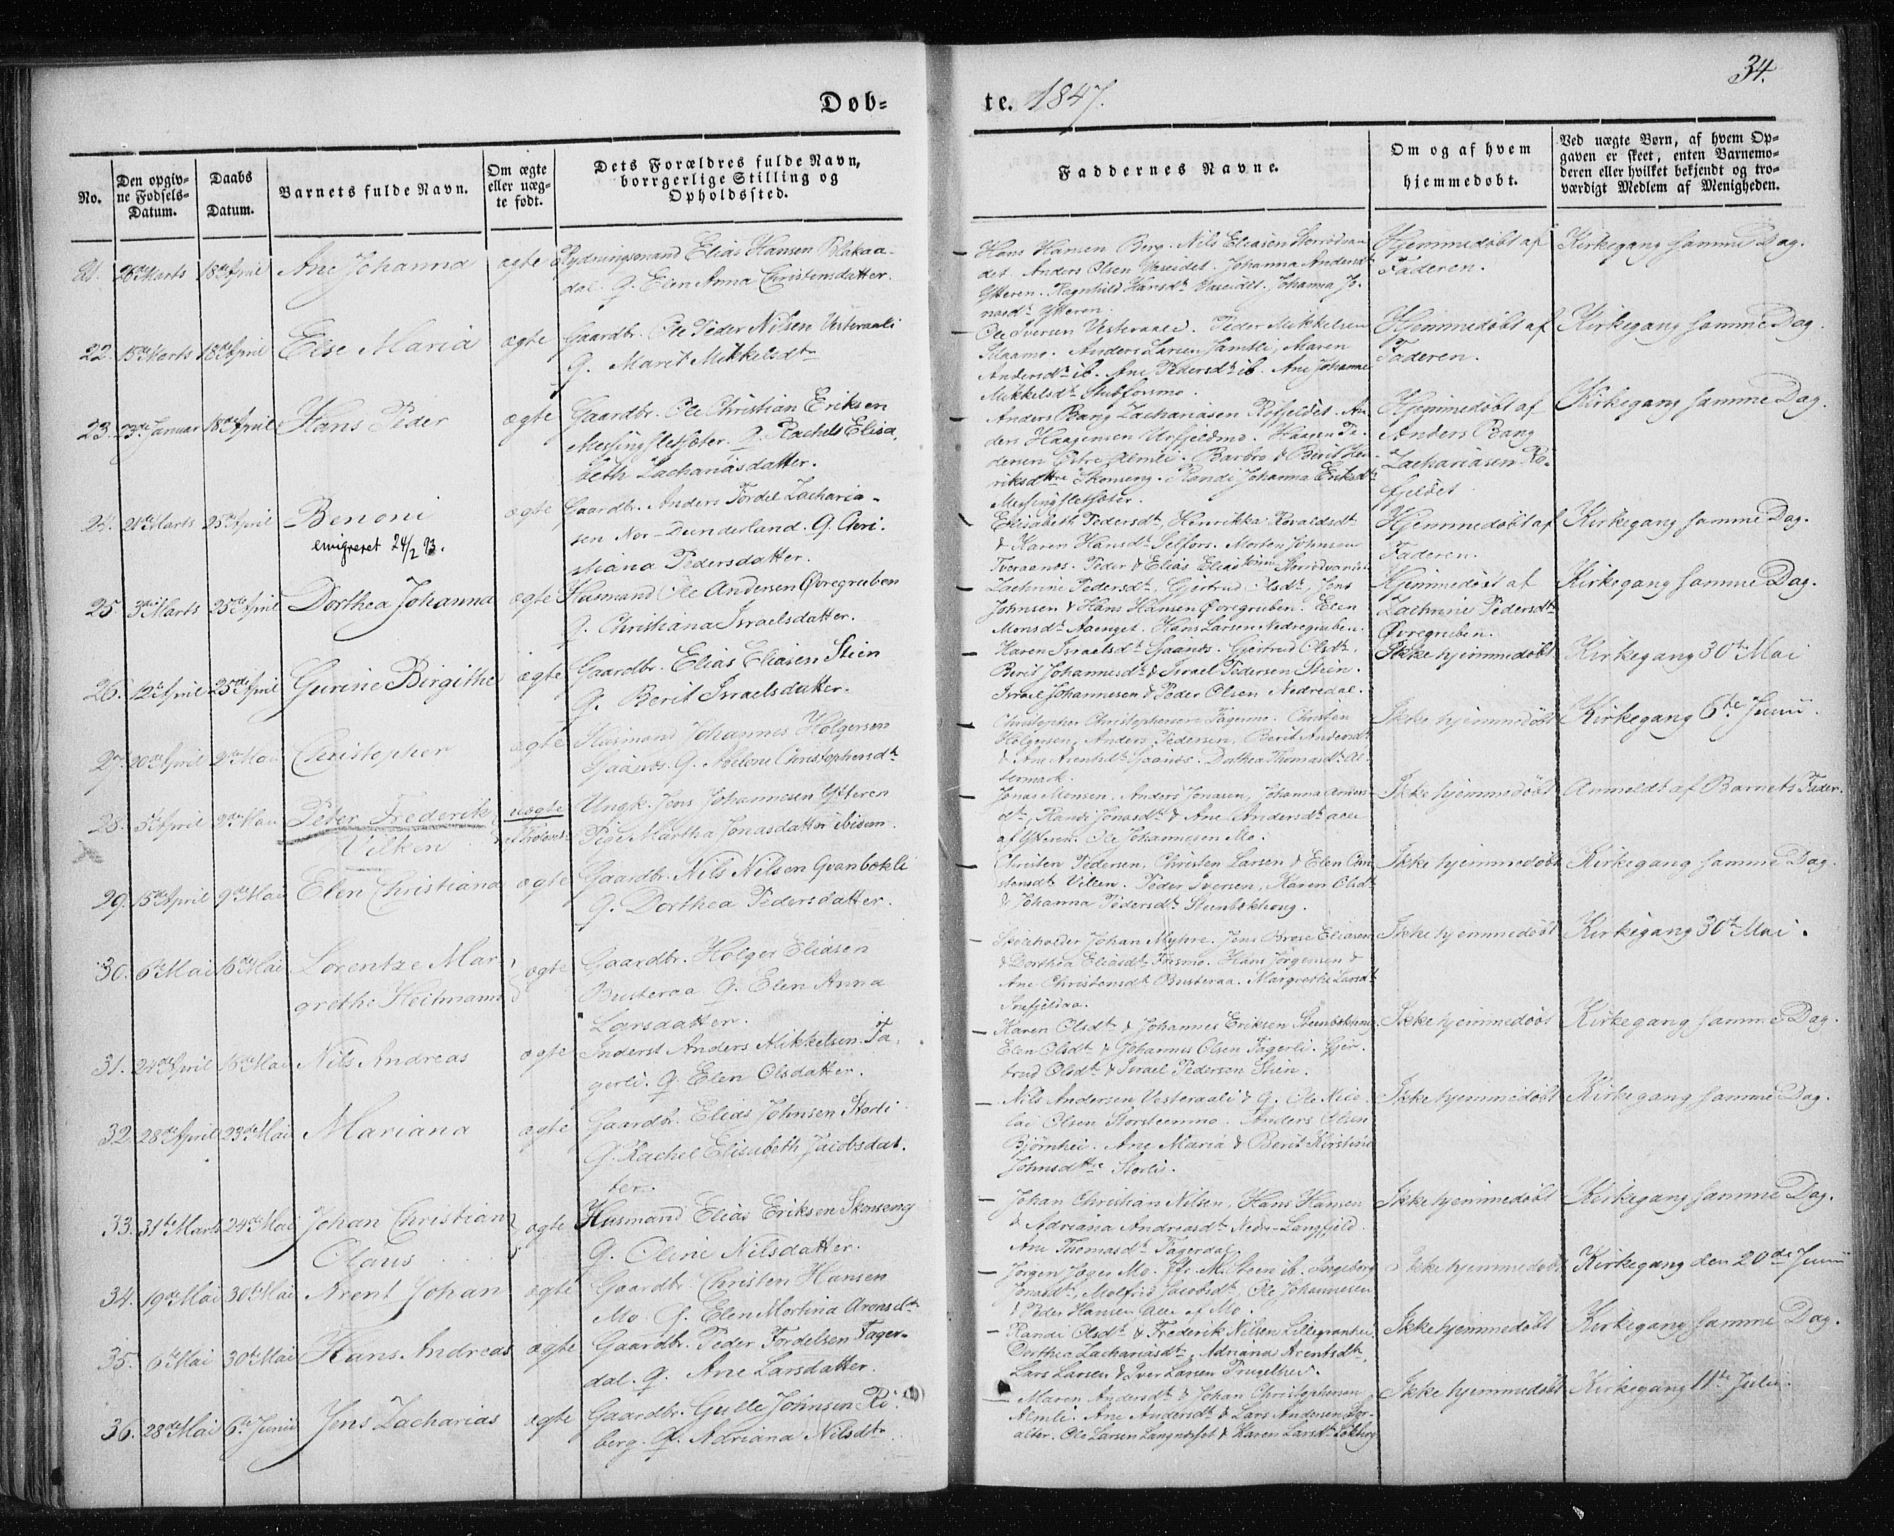 34.
Døb-
te. 1847.
No.
Den opgiv-
ne Fødsels-
Datum.
Daabs
Datum.
Barnets fulde Navn.
Om ægte
eller uæg-
te født.
Dets Forældres fulde Navn,
borrgerlige Stilling og
Opholdssted.
Faddernes Navne.
Om og af hvem
hjemmedøbt.
Ved uægte Børn, af hvem Op-
gaven er skeet, enten Barnemo-
deren eller hvilket bekjendt og tro-
værdigt Medlem af Menigheden.
21. 26de Marts 18de April Ane Johanna ægte Rydningsmand Elias Hansen Plakaa-
dal. G. Elen Anna Christensdatter.
Hans Hansen Berg. Nils Eliasen Storvoan
det. Anders Olsen Vaseidet. Johanna Andersdt
Ytteren. Ragnhild Hansdt Vaseidet. Johanna Jo-
nasdt Ytteren.
Hjemmedøbt af
Faderen.
Kirkegang samme Dag.
22. 15de Marts 18de April Else Maria ægte Gaardbr. Ole Peder Nilsen Vesteraali
G. Marit Mikkelsdtr
Ole Iversen Vesteraali. Peder Mikkelsen
Anders Larsen Jamtli, Maren
Andersdt ib. Ane Pedersdt ib. Ane Johanna
Mikkelsdt Stubforsmo.
Hjemmedøbt af
Faderen.
Kirkegang samme Dag.
23. 23de Januar 18de April Hans Peder ægte Gaardbr. Ole Christian Eriksen
Messingsletsæter. G. Rachel Elisa,
beth Zachariasdatter.
Anders Bang Zachariasen Røfjeldet. An-
ders Haagensen Urfjeldmo. Haagen Pe-
dersen Østre Almli. Barbro & Berit Hen-
riksdttre Skonseng. Randi Johanna Eriksdt
Messingsletsæter.
Hjemmedøbt af
Anders Bang
Zachariasen Rø-
fjeldet.
Kirkegang samme Dag.
24. 21de Marts 25de April Benoni
emigreret 24/2 93.
ægte Gaardbr. Anders Fordel Zacharia-
sen Nor-Dunderland. G. Chri-
stiana Pedersdatter.
Elisabeth Pedersdt, Henrikka Ronaldsdt
& Karen Hansdt Selfors. Morten Johnsen
Tveraanes. Peder & Elias Elias
Hjemmedøbt af
Faderen.
Kirkegang samme Dag.
25. 3die Marts 25de April Dorthea Johanna ægte Husmand Ole Andersen Øvregruben
G. Christiana Israelsdatter.
Zachrine Pedersdt, Gjertrud Olsdt, Jens
Johnsen & Hans Hansen Øvregruben. Elen
Monsdt Aaenget. Hans Larsen Nedregruben.
Hjemmedøbt af
Zachrine Pedersdt
Øvregruben.
Kirkegang samme Dag.
26. 12te April 25de April Gurine Birgithe ægte Gaardbr. Elias Eliasen Stien
G. Berit Israelsdatter.
Karen Israelsdt Sjaanæs. Gjertrud Olsdt,
Berit Johannesdt & Israel Pedersen Stien.
Israel Johannesen & Peder Olsen Nedredal.
Ikke hjemmedøbt
Kirkegang 30te Mai
27. 20de April 9de Mai Christopher ægte Husmand Johannes Holgersen
Sjaanæs. G. Abelone Christophersdt
Christopher Christophersen Fagermo. Christen
Holgersen, Anders Pedersen, Berit Andersdt
& Ane Arentsdt Sjaanæs. Dorthea Thomasdt Al-
termark.
Ikke hjemmedøbt
Kirkegang 6te Junii.
28. 5te April 9de Mai Peter Frederik
Vilken
uægte Ungk. Jens Johannesen Ytteren
Pige Martha Jonasdatter ibidem.
Jonas Monsen, Anders Jonasen, Johanna Anders-
dt, Randi Jonasdt & Ane Andersdt alle
af Ytteren. Ole Johannesen Mo.
Ikke hjemmedøbt
Anmeldt af Barnets Fader.
29. 15de April 9de Mai Elen Christiana ægte Gaardbr. Nils Nilsen Qvanbækli
G. Dorthea Pedersdatter.
Christen Pedersen, Christen Larsen & Elen Chri-
stensdt Villen. Peder Iversen, Karen Olsdt
& Johanna Pedersdt Stenbækhoug.
Ikke hjemmedøbt
Kirkegang samme Dag.
30. 6te Mai 16de Mai Lorentze Mar-
grethe Heitmann
ægte Gaardbr. Holger Eliasen
Busteraa G. Elen Anna
Larsdatter.
Skoleholder Johan Myhre. Jens Brose Eliasen
& Dorthea Eliasdt Fæsmo. Hans Jørgensen &
Ane Christensdt Busteraa. Margrethe Larsdt
Snefjeldaa.
Ikke hjemmedøbt
Kirkegang 30te Mai.
31. 24de April 16de Mai Nils Andreas ægte Inderst Anders Mikkelsen Fa-
gerli. G. Elen Olsdatter.
Karen Olsdt & Johannes Eriksen Stenbækhoug.
Elen Olsdt & Johannes Olsen Fagerli. Gjer-
trud Olsdt & Israel Pedersen Stien.
Ikke hjemmedøbt
Kirkegang samme Dag.
32. 28de April 23de Mai Mariana ægte Gaardbr. Elias Johnsen Storli
G. Rachel Elisabeth Jacobsdat-
ter.
Nils Andersen Vesteraali & G. Ole Nico-
lai Olsen Storsteenmo. Anders Olsen
Bjørnhei. Ane Maria & Berit Kirstine
Johnsdttre Storli.
Ikke hjemmedøbt
Kirkegang samme Dag.
33. 31te Marts 24de Mai Johan Christian
Olaus
ægte Husmand Elias Eriksen Skonseng
G. Oline Nilsdatter.
Johan Christian Nilsen, Hans Hansen
& Adriana Andreasdt Nedre-Langfjeld.
Ane Thomasdt Fagerdal.
Ikke hjemmedøbt
Kirkegang samme Dag.
34. 19de Mai 30te Mai Arent Johan ægte Gaardbr Christen Hansen
Mo. G. Elen Martina Aronsdt
Jørgen Jæger Mo. Ingeborg
Jonasdt, Malfrid Jacobsdt, Ole Johannesen
& Peder Hansen alle af Mo.
Ikke hjemmedøbt
Kirkegang den 20de Junii
35. 6te Mai 30te Mai Hans Andreas ægte Gaardbr. Peder Fordelsen Fager-
dal. G. Ane Larsdatter.
Randi Olsdt & Frederik Nilsen Lillegranhei.
Dorthea Zachariasdt, Adriana Arentsdt,
Lars Larsen & Iver Larsen
Ikke hjemmedøbt
Kirkegang samme Dag.
36. 28de Mai 6te Junii Jens Zacharias ægte Gaardbr. Gulle Johnsen Rø-
berg. G. Adriana Nilsdtr
Maren Andersdt & Johan Christophersen
Almli. Ane Andersdt & Lars Andersen Sør-
alter. Ole Larsen Langnæsset & Karen Larsdt
Ikke hjemmedøbt
Kirkegang 11te Julii.